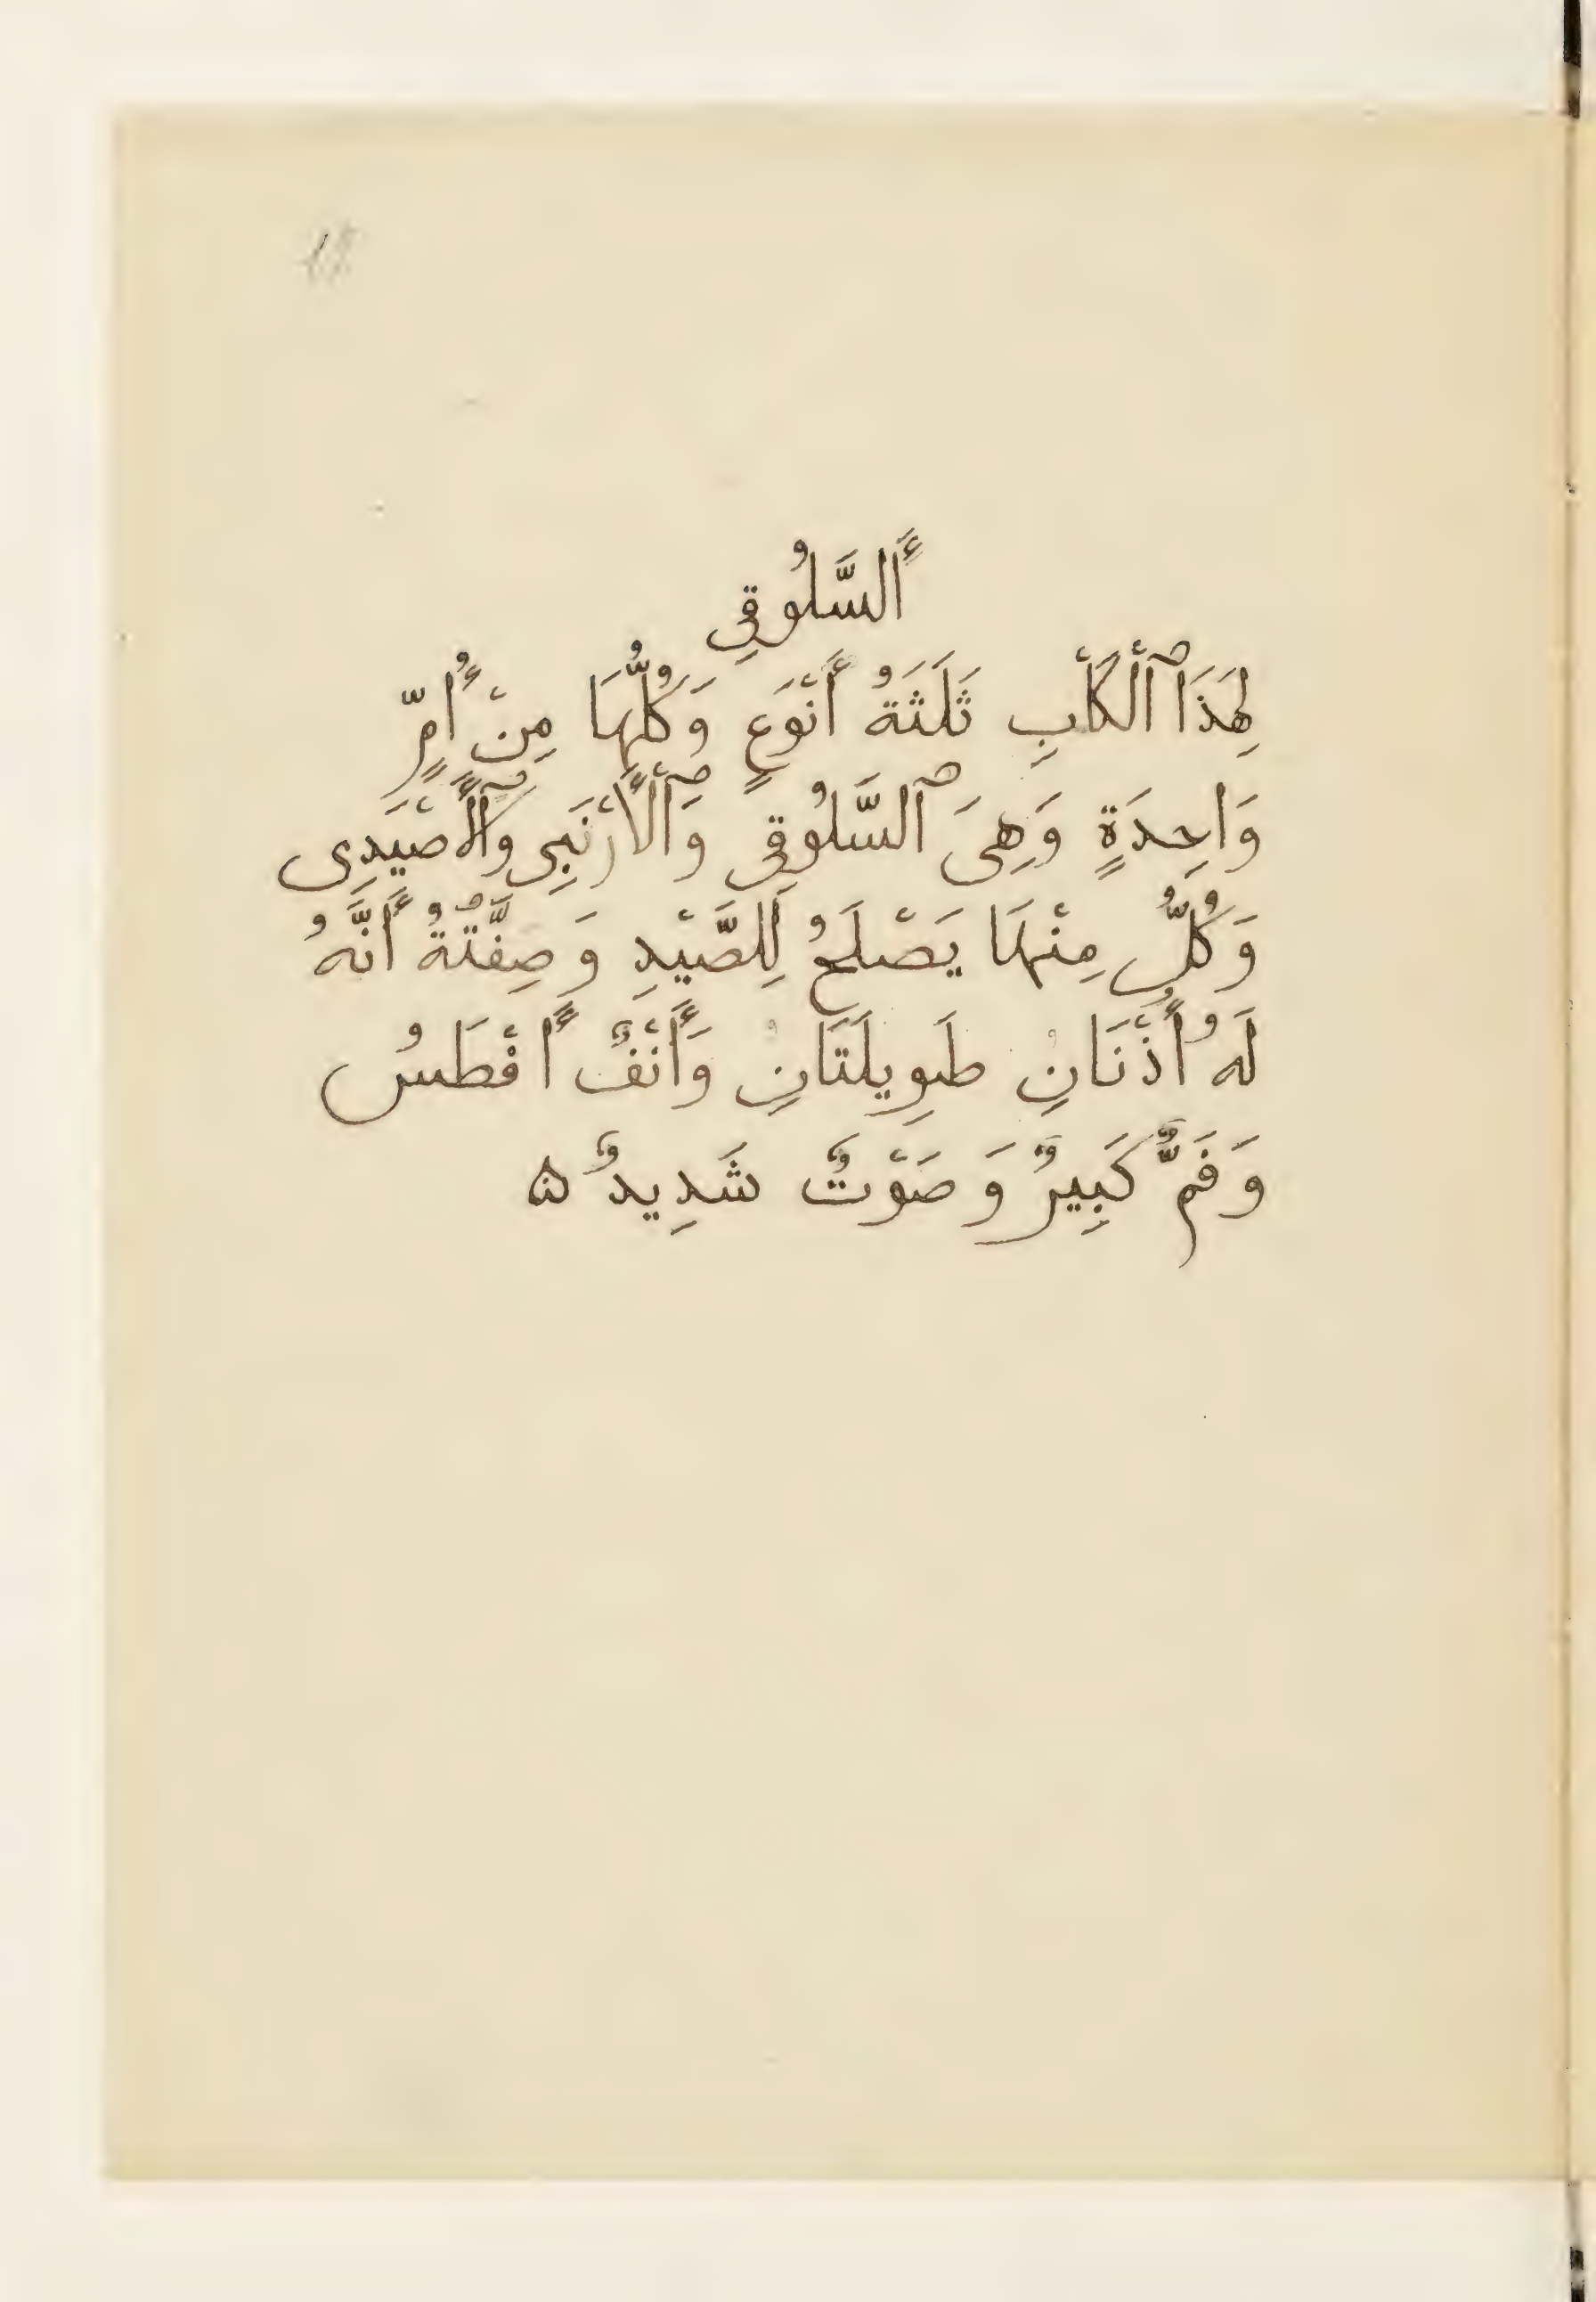 أَلسَّلُوقِي
لِهَذَا ٱلْكَأْبِ ثَلَثَةُ أَنْوَعٍ وَكُلُّهَا مِنْ أُمٍّ
وَاحِدَةٍ وَهِيَ ٱلسَّلُوقِى وَٱلْأَرْنَبِى وَٱلْأَصْيَدِى
وَكُلُّ مِنْهَا يَصْلَحُ لِلصَّيْدِ وَصِفَّتُهُ أَنَّهُ
لَهُ أُذْنَانِ طَوِيلَتَانِ وَأَنْفٌ أَفْطَسُ
وَفَمٌّ كَبِيرٌ وَصَوْتٌ شَدِيدٌ